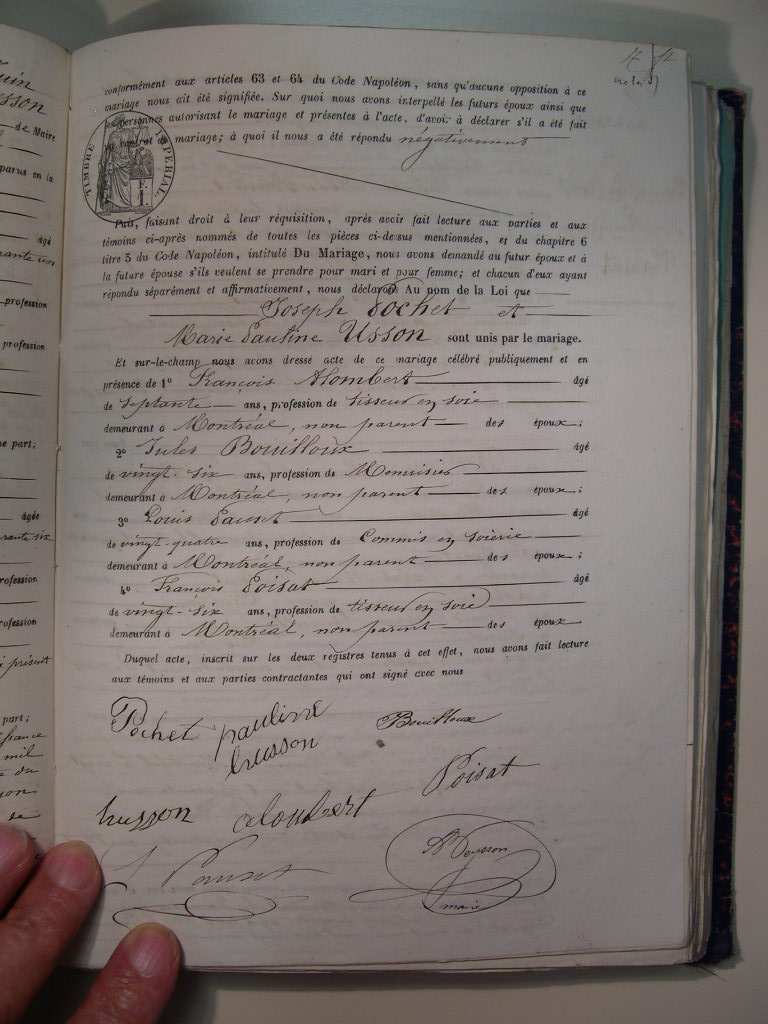 uin
sson
de Maire
parus en la
âgé
profession
profession
e part;
âgée
rante six
rofession
rofession
présent
part;
france
mil
du
son
se
4
acte 5
conformément aux articles 63 et 64 du Code Napoléon, sans qu'aucune opposition à ce
mariage nous ait été signifiée. Sur quoi nous avons interpellé les futurs époux ainsi que
personnes autorisant le mariage et présentes à l'acte, d'avoir à déclarer s'il a été fait
contrat de mariage; à quoi il nous a été répondu négativement
TIMBRE IMPÉRIAL
F.
1.
Puis, faisant droit à leur réquisition, après avoir fait lecture aux parties et aux
témoins ci-après nommés de toutes les pièces ci-dessus mentionnées, et du chapitre 6
titre 5 du Code Napoléon, intitulé Du Mariage, nous avons demandé au futur époux et à
la future épouse s'ils veulent se prendre pour mari et pour femme; et chacun d'eux ayant
répondu séparément et affirmativement, nous déclarons Au nom de la Loi que
Joseph Pochet et
Marie Pauline Usson sont unis par le mariage.
Et sur-le-champ nous avons dressé acte de ce mariage célébré publiquement et en
présence de 1º François Alombert âgé
de septante ans, profession de tisseur en soie
demeurant à Montréal, non parent des époux;
2º Jules Bouilloux âgé
de vingt-six ans, profession de Menuisier
demeurant à Montréal, non parent des époux;
3º Louis Pauset âgé
de vingt-quatre ans, profession de Commis en soierie
demeurant à Montréal, non parent des époux;
4º François Poisat âgé
de vingt-six ans, profession de tisseur en soie
demeurant à Montréal, non parent des époux
Duquel acte, inscrit sur les deux registres tenus à cet effet, nous avons fait lecture
aux témoins et aux parties contractantes qui ont signé avec nous
Pochet pauline Bouilloux
husson
Poisat
husson aloubert
maire